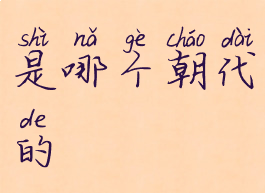 shì nǎ gè cháo dài
是哪个朝代
de
的